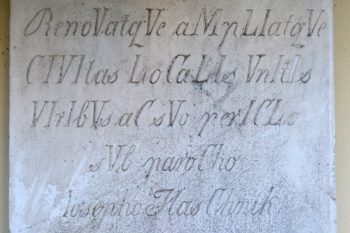 RenoVatqVe aMpLIatqVe
CIVItas LoCaLIs VnItIs
VIrIbVs aC sVo perICLo
sVb paroCho
Iosepho HlasClvnik